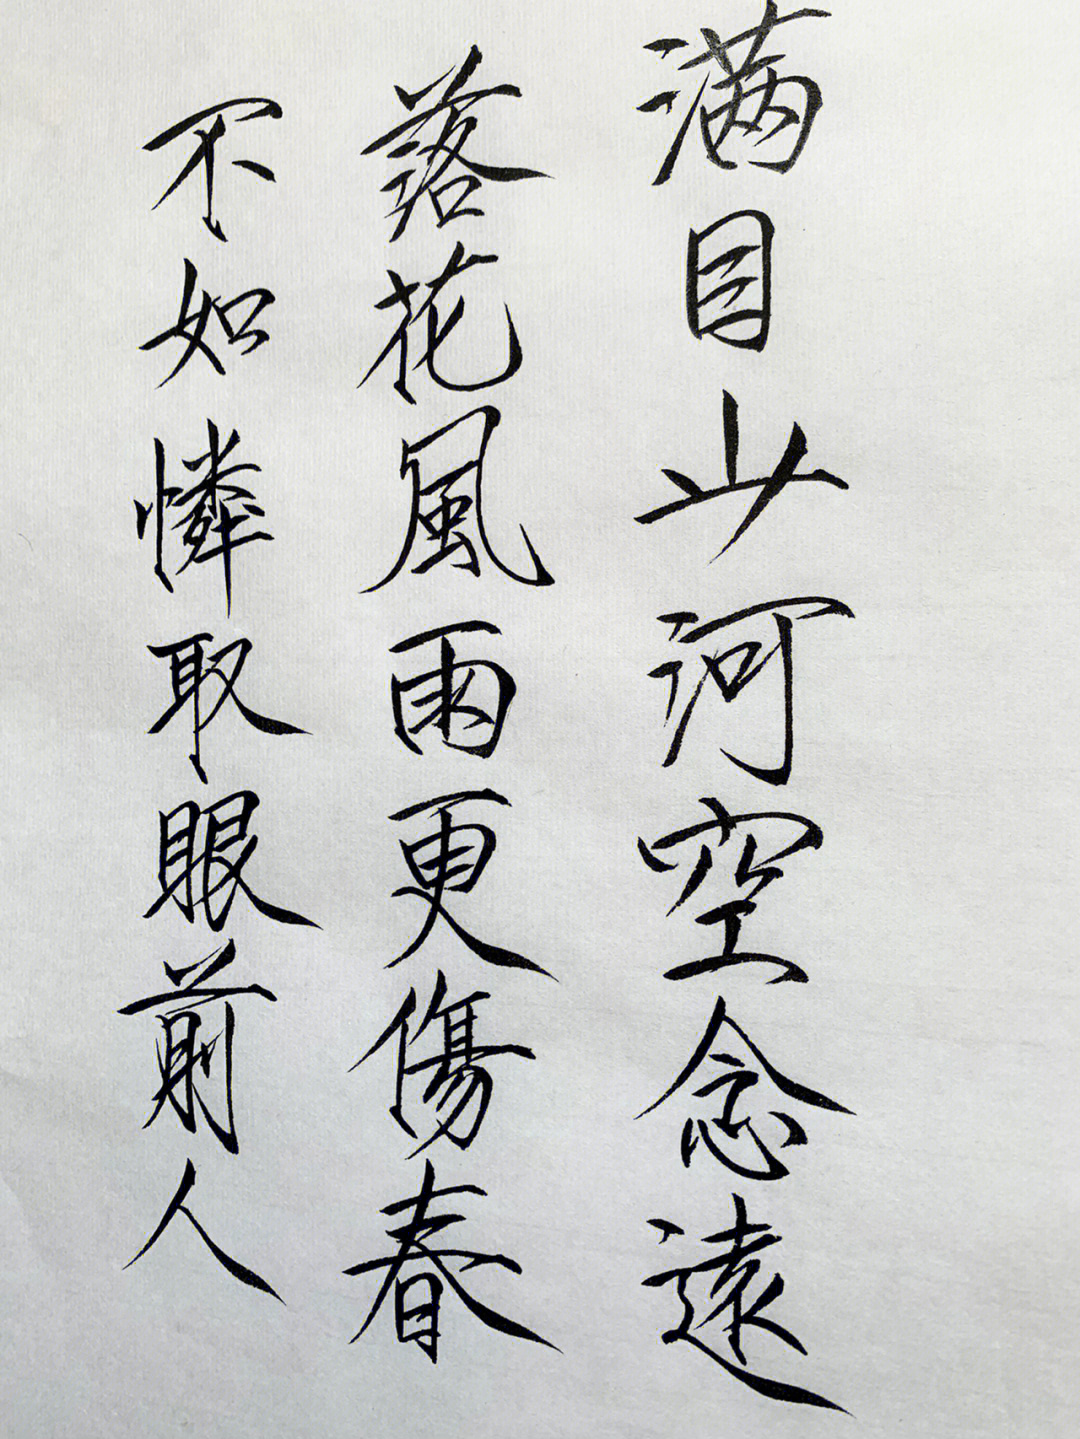 满目山河空念遠
落花風雨更傷春
不如憐取眼前人